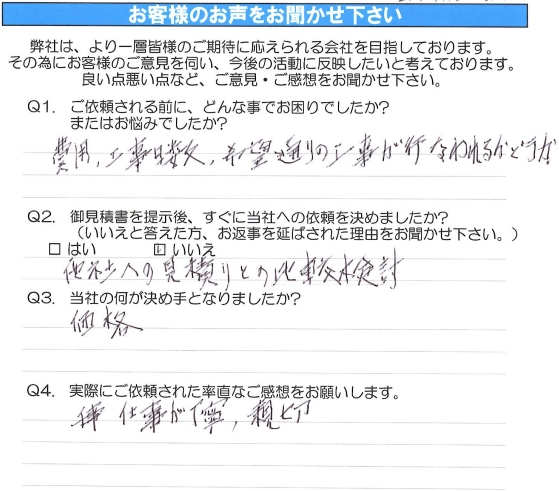 お客様のお声をお聞かせ下さい
弊社は、より一層皆様のご期待に応えられる会社を目指しております。
その為にお客様のご意見を伺い、今後の活動に反映したいと考えております。
良い点悪い点など、ご意見・ご感想をお聞かせ下さい。
Q1. ご依頼される前に、どんな事でお困りでしたか?
またはお悩みでしたか?
費用,工事日数,希望通りの工事が行なわれるかどうか
Q2. 御見積書を提示後、すぐに当社への依頼を決めましたか?
(いいえと答えた方、お返事を延ばされた理由をお聞かせ下さい。)
□ はい □ いいえ
他社への見積りとの比較検討
Q3. 当社の何が決め手となりましたか?
価格
Q4. 実際にご依頼された率直なご感想をお願いします。
仕事が丁寧,親切